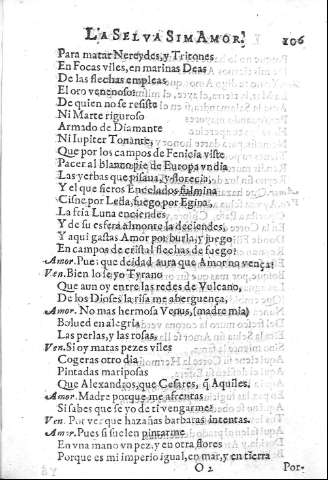 LA SELVA SIM AMOR. 106
Para matar Nereydes, y Tritones
En Focas viles, en marinas Deas
De las flechas empleas
El oro venenoso?
De quien no se resiste
Ni Marte riguroso
Armado de Diamante
Ni Iupiter Tonante,
Que por los campos de Fenicia viste
Pacer al blanco pie de Europa vndia
Las yerbas que pisaua, y florecia,
Y el que fieros Encelados fulmina
Cisne por Leda, fuego por Egina,
La fria Luna enciendes
Y de su esfera al monte la deciendes,
Y aqui gastas Amor por burla, y juego
En campos de cristal flechas de fuego?
Amor. Pues que deidad aura que Amor no vença?
Ven. Bien lo se yo Tyrano
Que aun oy entre las redes de Vulcano,
De los Dioses la risa me aberguença,
Amor. No mas hermosa Venus, (madre mia)
Bolued en alegria
Las perlas, y las rosas,
Ven. Si oy matas pezes viles
Cogeras otro dia
Pintadas mariposas
Que Alexandros, que Cesares, q̃ Aquiles.
Amor. Madre porque me afrentas
Si sabes que se yo de ti vengarme?
Ven. Por ver que hazañas barbaras intentas.
Amor. Pues si suelen pintarme
En vna mano vn pez, y en otra flores
Porque es mi imperio igual, en mar, y en tierra
O 2 Por-